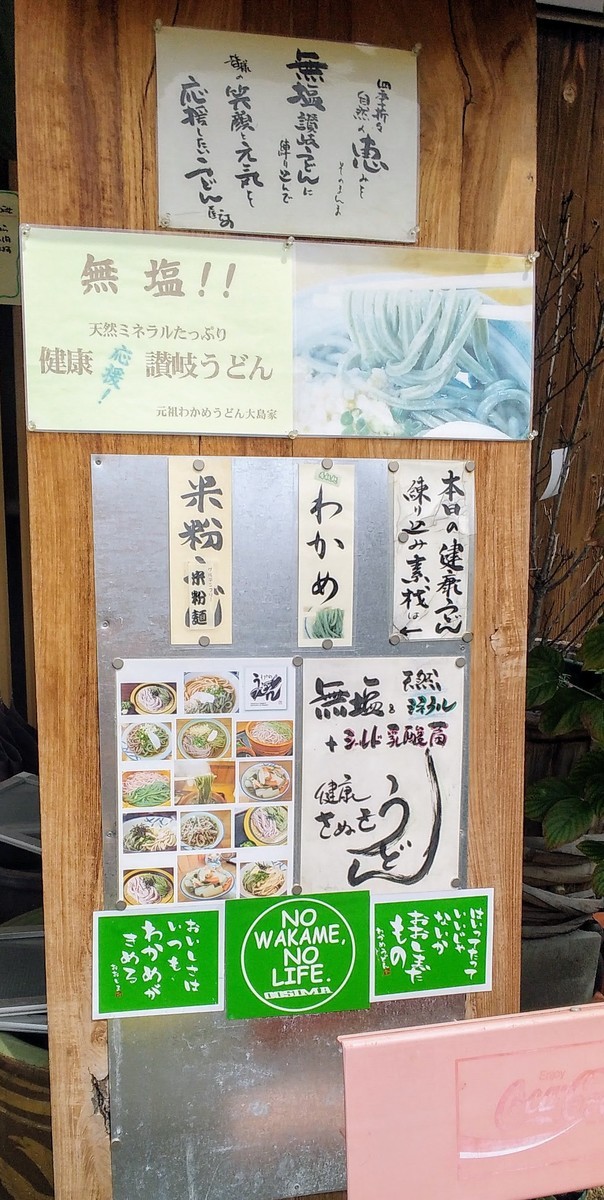 四季折々
自然の恵みを
そのまんま
無塩讃岐うどんに
練り込んで
皆様の笑顔と元気を
応援したいうどん屋
無塩!!
天然ミネラルたっぷり
健康応援!讃岐うどん
元祖わかめうどん大島家
本日の健康うどん
練り込み素材は
←
わかめ
米粉
米粉麺
無塩&天然
ミネラル
+シールド乳酸菌
健康
さぬき
うどん
はいってたって
いいじゃ
ないか
おおしまだ
もの
NO
WAKAME,
NO
LIFE.
おいしさは
いつも、
わかめが
きめる
Enjoy
Coca-Cola